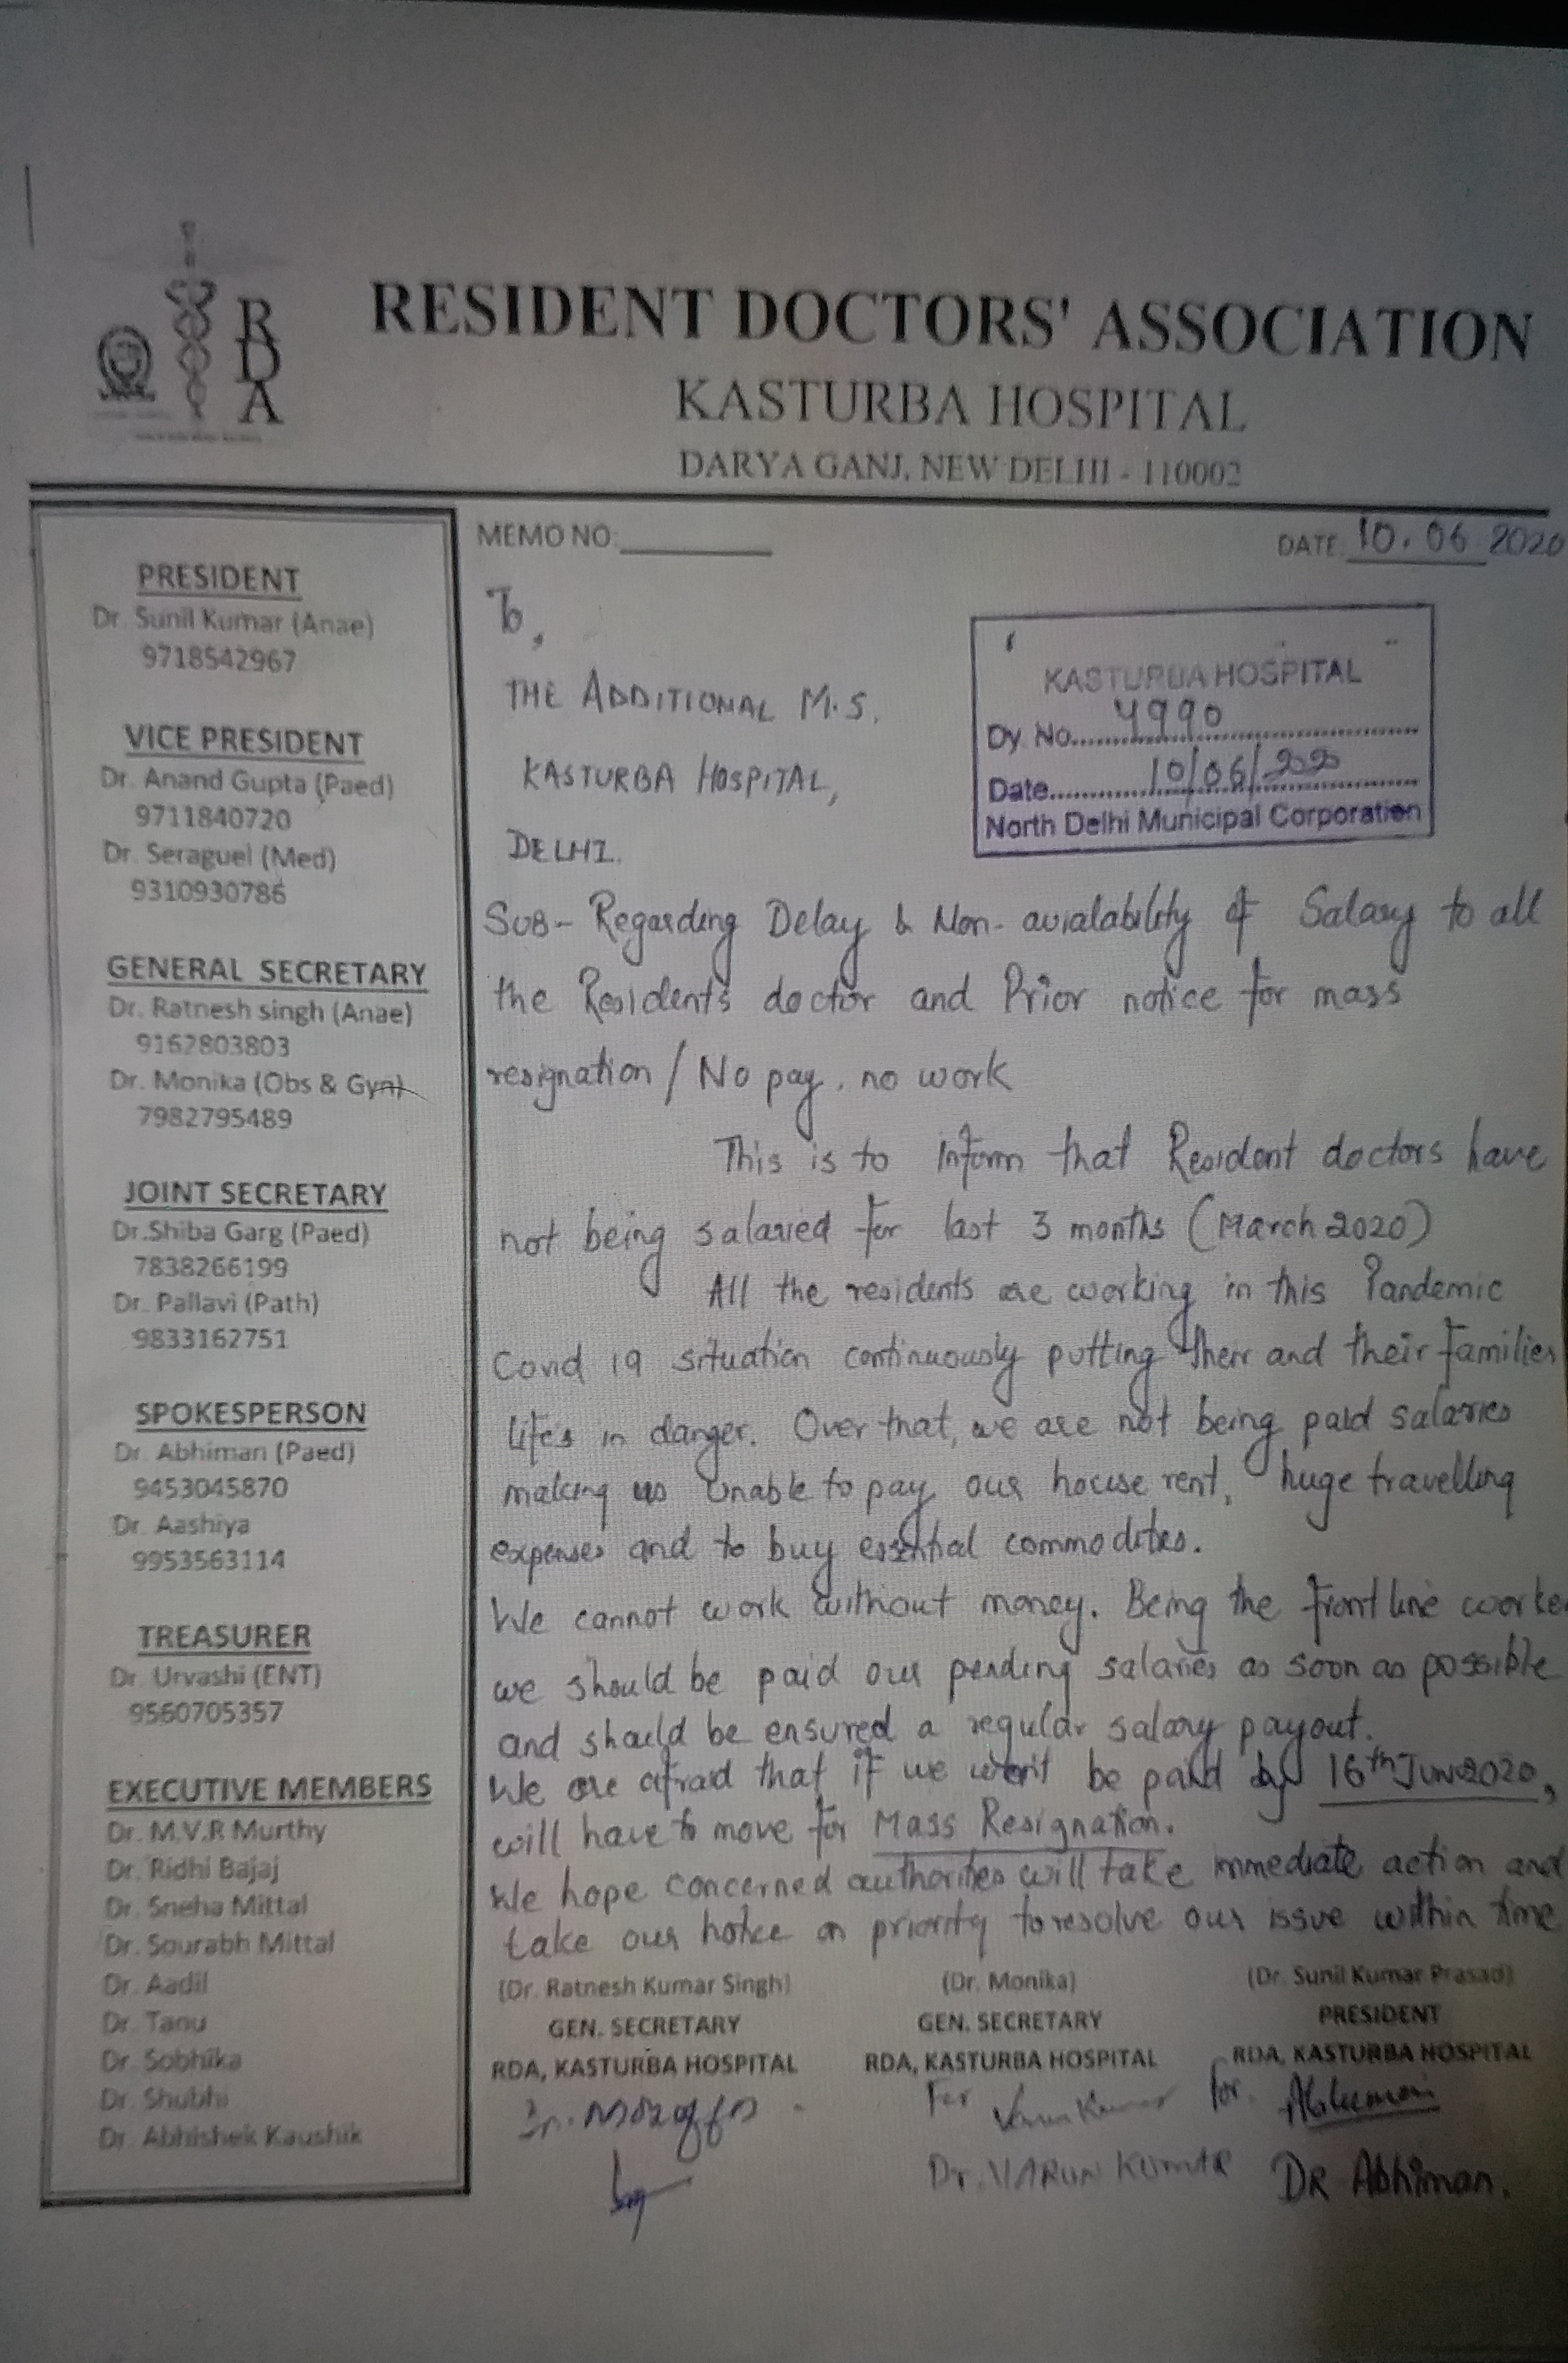 RDA
RESIDENT DOCTORS' ASSOCIATION
KASTURBA HOSPITAL
DARYA GANJ, NEW DELHI - 110002
PRESIDENT
Dr. Sunil Kumar (Anae)
9718542967
VICE PRESIDENT
Dr. Anand Gupta (Paed)
9711840720
Dr. Seraguel (Med)
9310930786
GENERAL SECRETARY
Dr. Ratnesh singh (Anae)
9162803803
Dr. Monika (Obs & Gyn)
7982795489
JOINT SECRETARY
Dr.Shiba Garg (Paed)
7838266199
Dr. Pallavi (Path)
9833162751
SPOKESPERSON
Dr. Abhiman (Paed)
9453045870
Dr. Aashiya
9953563114
TREASURER
Dr. Urvashi (ENT)
9560705357
EXECUTIVE MEMBERS
Dr. M.V.R Murthy
Dr. Ridhi Bajaj
Dr. Sneha Mittal
Dr. Sourabh Mittal
Dr. Aadil
Dr. Tanu
Dr. Sobhika
Dr. Shubhi
Dr. Abhishek Kaushik
MEMO NO:
DATE: 10.06 2020
To,
THE ADDITIONAL M.S,
KASTURBA HOSPITAL,
DELHI.
KASTURBA HOSPITAL
Dy. No. 4990
Date 10/06/2020
North Delhi Municipal Corporation
SUB- Regarding Delay & Non-avialability of Salary to all
the Residents doctor and Prior notice for mass
resignation / No pay, no work
This is to inform that Resident doctors have
not being salaried for last 3 months (March 2020)
All the residents are working in this Pandemic
Covid 19 situation continuously putting their and their families
life's in danger. Over that, we are not being paid salaries
making us unable to pay our house rent, huge travelling
expenses and to buy essential commodities.
We cannot work without money. Being the front line worker
we should be paid our pending salaries as soon as possible
and should be ensured a regular salary payout.
We are afraid that if we won't be paid by 16th Jun 2020,
will have to move for Mass Resignation.
We hope concerned authorities will take immediate action and
take our notice on priority to resolve our issue within time
(Dr. Ratnesh Kumar Singh) (Dr. Monika) (Dr. Sunil Kumar Prasad)
GEN. SECRETARY GEN. SECRETARY PRESIDENT
RDA, KASTURBA HOSPITAL RDA, KASTURBA HOSPITAL RDA, KASTURBA HOSPITAL
For Varun Kumar for Abhiman
Dr. VARUN KUMAR DR Abhiman.